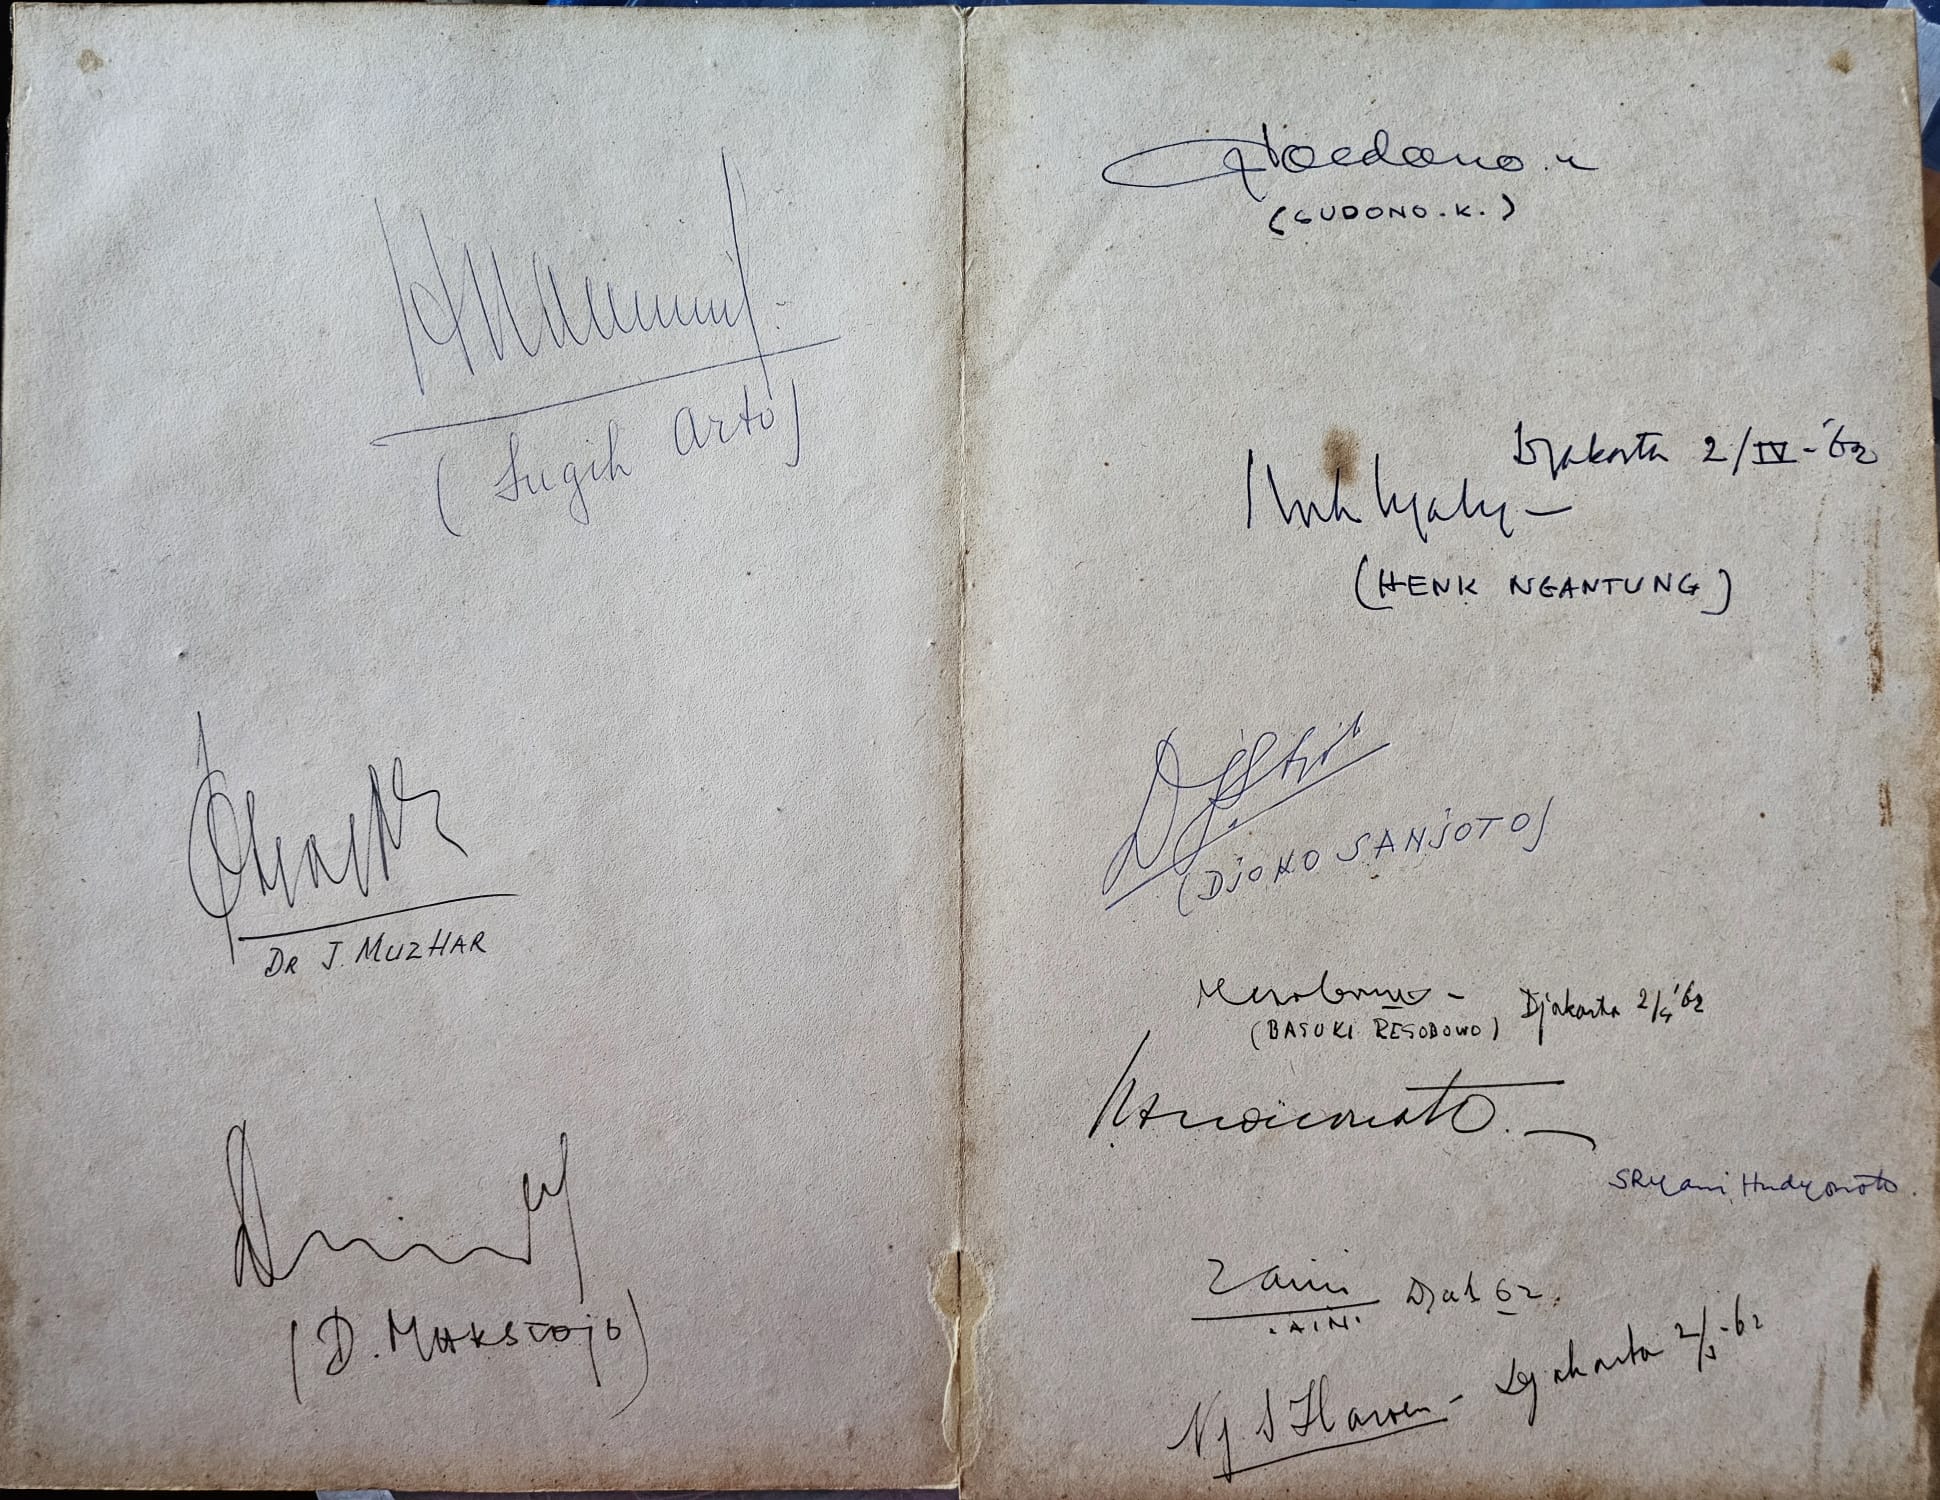 (Sugih Arto)
Dr J. MUZHAR
(D. MAKSTOJO)
Goedono.K
(GUDONO.K.)
Djakarta 2/IV-'62
(HENK NGANTUNG)
(DJOKO SANJOTO)
(BASUKI RESOBOWO) Djakarta 2/4 '62
SRyani Hudyonoto.
Zaini Djak 62.
Djakarta 2/-62